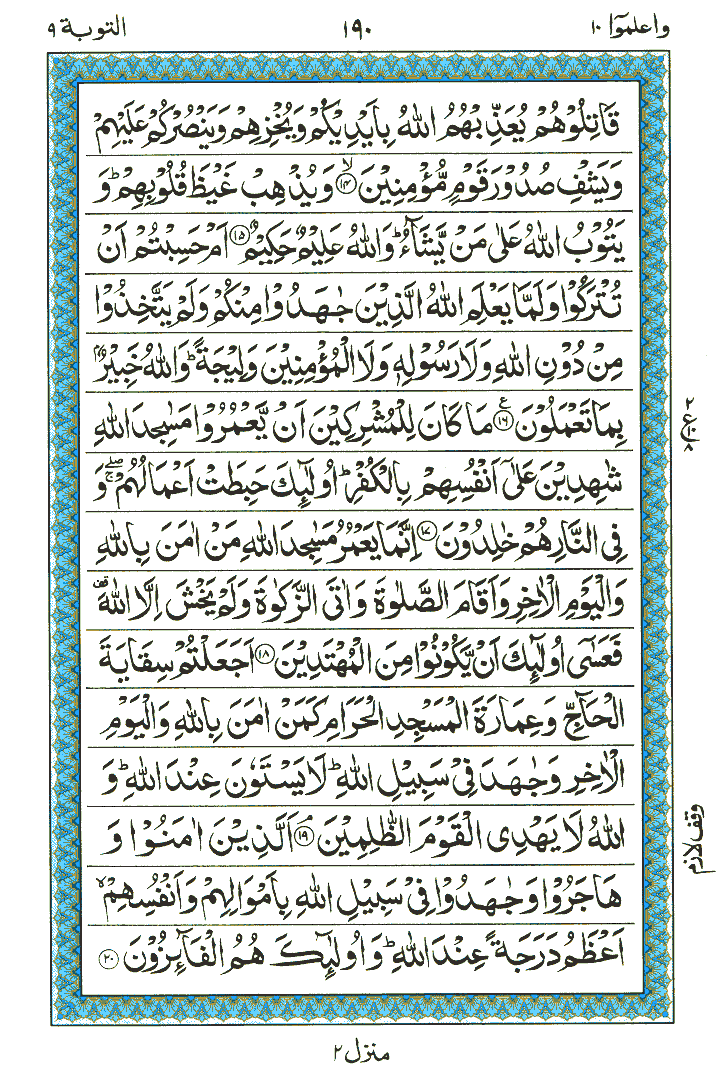 واعلموٓا ١٠
١٩٠
التوبة ٩
قَاتِلُوْهُمْ يُعَذِّبْهُمُ اللّٰهُ بِاَيْدِيْكُمْ وَيُخْزِهِمْ وَيَنْصُرْكُمْ عَلَيْهِمْ
وَيَشْفِ صُدُوْرَ قَوْمٍ مُّؤْمِنِيْنَ ۙ﴿۱۴﴾ وَيُذْهِبْ غَيْظَ قُلُوْبِهِمْ ؕ وَ
يَتُوْبُ اللّٰهُ عَلٰى مَنْ يَّشَآءُ ؕ وَاللّٰهُ عَلِيْمٌ حَكِيْمٌ ﴿۱۵﴾ اَمْ حَسِبْتُمْ اَنْ
تُتْرَكُوْا وَلَمَّا يَعْلَمِ اللّٰهُ الَّذِيْنَ جٰهَدُوْا مِنْكُمْ وَلَمْ يَتَّخِذُوْا
مِنْ دُوْنِ اللّٰهِ وَلَا رَسُوْلِهٖ وَلَا الْمُؤْمِنِيْنَ وَلِيْجَةً ؕ وَاللّٰهُ خَبِيْرٌۢ
بِمَا تَعْمَلُوْنَ ﴿۱۶﴾ؑ مَا كَانَ لِلْمُشْرِكِيْنَ اَنْ يَّعْمُرُوْا مَسٰجِدَ اللّٰهِ
شٰهِدِيْنَ عَلٰٓى اَنْفُسِهِمْ بِالْكُفْرِ ؕ اُولٰٓئِكَ حَبِطَتْ اَعْمَالُهُمْ ۖۚ وَ
فِى النَّارِ هُمْ خٰلِدُوْنَ ﴿۱۷﴾ اِنَّمَا يَعْمُرُ مَسٰجِدَ اللّٰهِ مَنْ اٰمَنَ بِاللّٰهِ
وَالْيَوْمِ الْاٰخِرِ وَاَقَامَ الصَّلٰوةَ وَاٰتَى الزَّكٰوةَ وَلَمْ يَخْشَ اِلَّا اللّٰهَ
فَعَسٰٓى اُولٰٓئِكَ اَنْ يَّكُوْنُوْا مِنَ الْمُهْتَدِيْنَ ﴿۱۸﴾ اَجَعَلْتُمْ سِقَايَةَ
الْحَآجِّ وَعِمَارَةَ الْمَسْجِدِ الْحَرَامِ كَمَنْ اٰمَنَ بِاللّٰهِ وَالْيَوْمِ
الْاٰخِرِ وَجٰهَدَ فِىْ سَبِيْلِ اللّٰهِ ؕ لَا يَسْتَوٗنَ عِنْدَ اللّٰهِ ؕ وَ
اللّٰهُ لَا يَهْدِى الْقَوْمَ الظّٰلِمِيْنَ ۘ﴿۱۹﴾ اَلَّذِيْنَ اٰمَنُوْا وَ
هَاجَرُوْا وَجٰهَدُوْا فِىْ سَبِيْلِ اللّٰهِ بِاَمْوَالِهِمْ وَاَنْفُسِهِمْ ۙ
اَعْظَمُ دَرَجَةً عِنْدَ اللّٰهِ ؕ وَاُولٰٓئِكَ هُمُ الْفَآئِزُوْنَ ﴿۲۰﴾
وقف لازم
منزل ٢